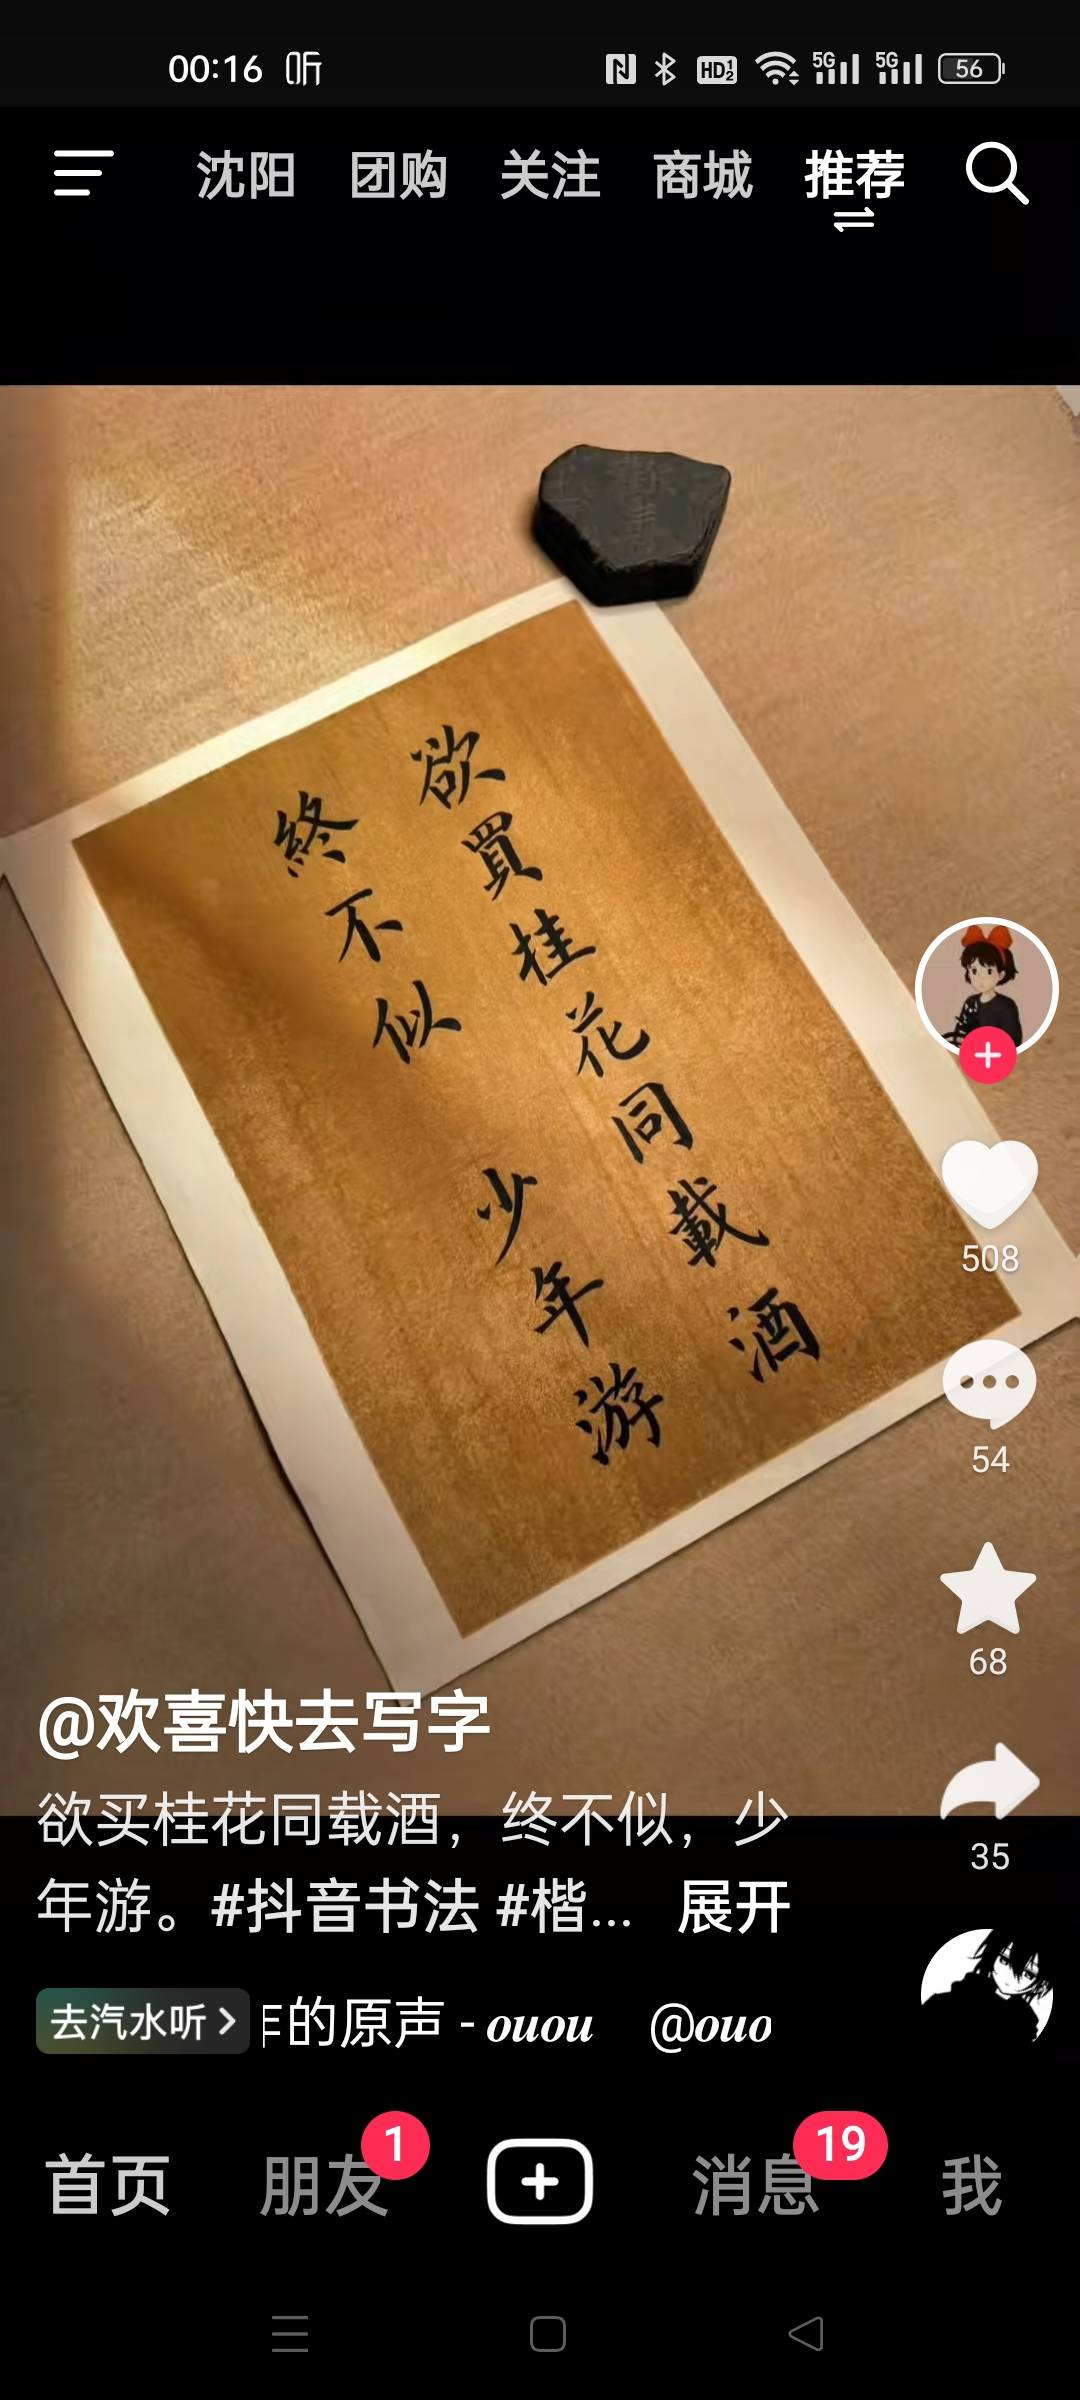 00:16 听 HD 1 2 5G 5G 56
沈阳 团购 关注 商城 推荐
欲買桂花同載酒
終不似
少年游
508
54
68
35
@欢喜快去写字
欲买桂花同载酒，终不似，少
年游。#抖音书法 #楷... 展开
去汽水听 的原声 - ouou @ouo
首页 朋友 1 消息 19 我